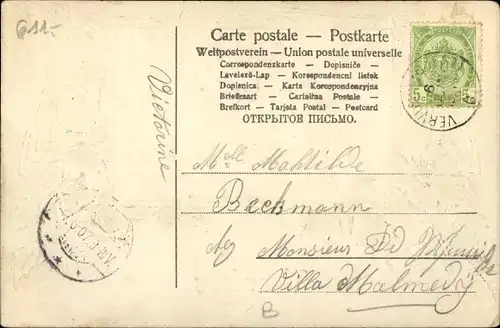 G11.-
Carte postale — Postkarte
Weltpostverein — Union postale universelle
Correspondenzkarte — Dopisnice
Levelező-Lap — Korespondencni listek
Dopisnica — Karta Korespondencyjna
Briefkaart — Cartolina Postale —
Brefkort — Tarjeta Postal — Postcard
ОТКРЫТОЕ ПИСЬМО.
5
5
VERVI
Victorine
Mlle Mathilde
Beckmann
chez Monsieur
Villa Malmedy
B